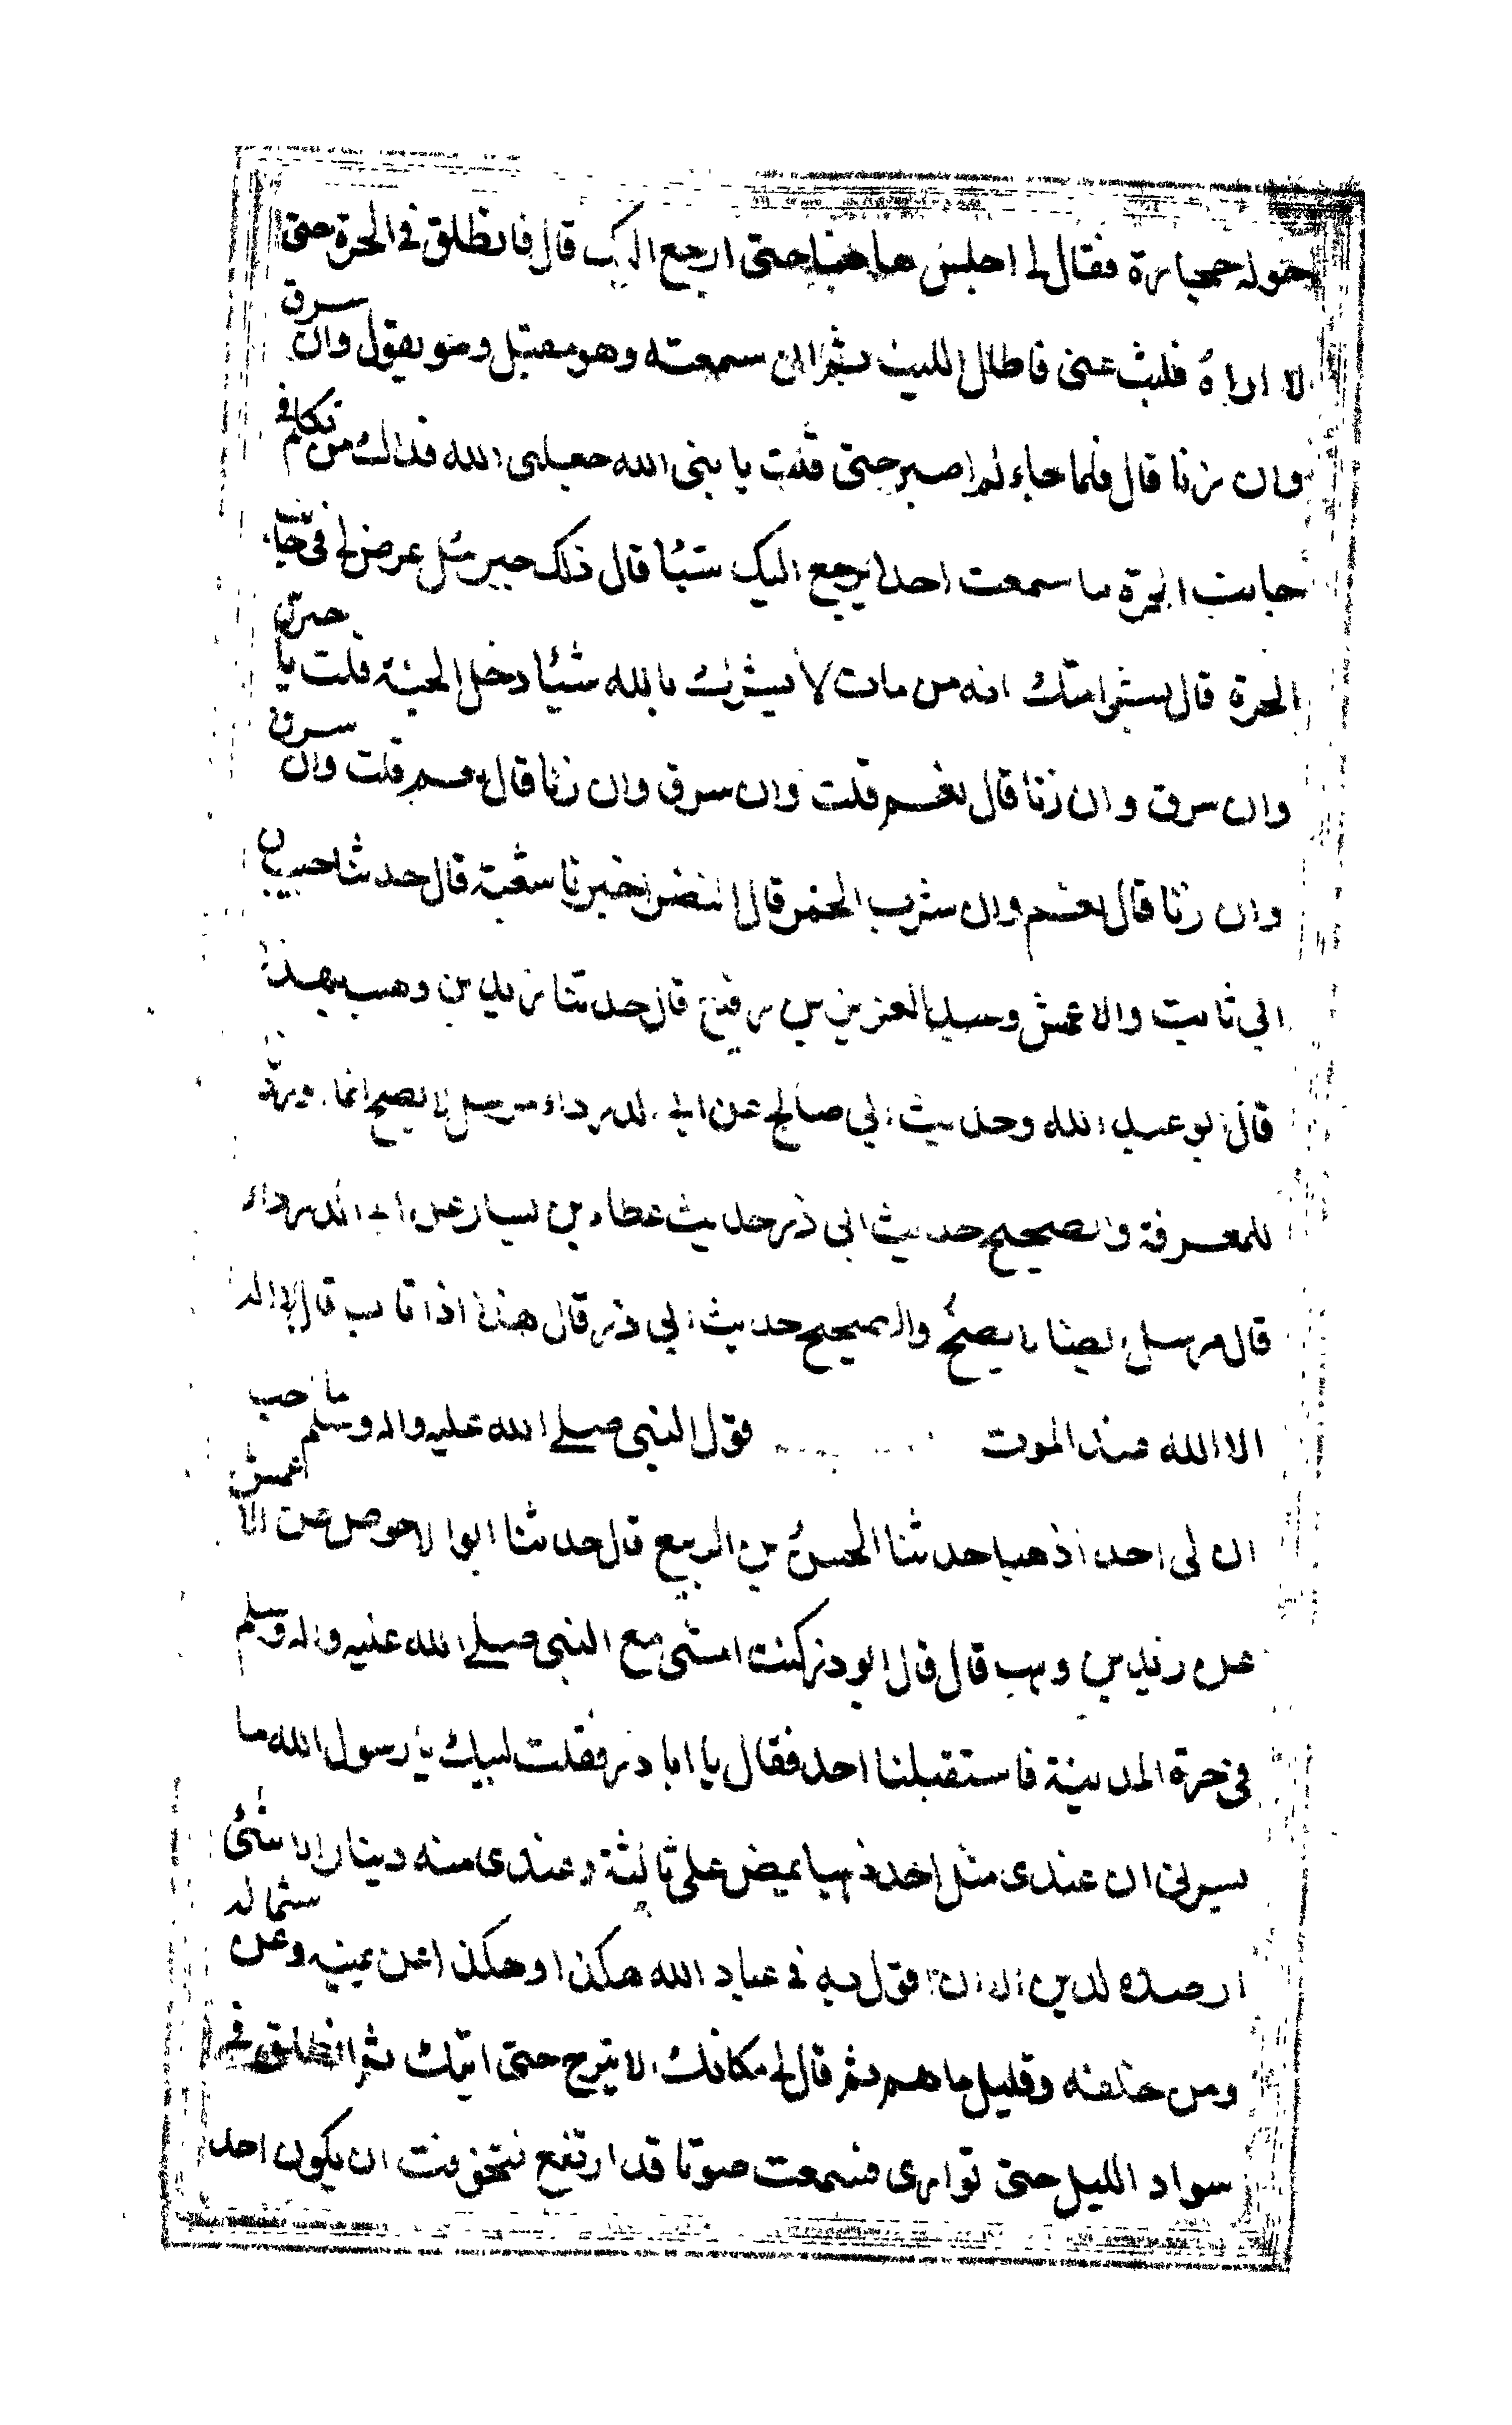 حوله حجارة فقال لى اجلس هاهنا حتى ارجع اليك قال فانطلق فى الحرة حتى
لا اراه فلبث عنى فاطال اللبث ثم انى سمعته وهو مقبل وهو يقول وان سرق
وان زنا قال فلما جاء لم اصبر حتى قلت يا نبى الله جعلنى الله فداك من تكلم فى
جانب الحرة ما سمعت احدا يرجع اليك شيئا قال ذلك جبرئيل عرض لى فى جانب
الحرة قال بشر امتك انه من مات لا يشرك بالله شيئا دخل الجنة قلت يا جبريل
وان سرق وان زنا قال نعم قلت وان سرق وان زنا قال نعم قلت وان سرق
وان زنا قال نعم وان شرب الخمر قال النضر اخبرنا شعبة قال حدثنا حبيب بن
ابى ثابت والاعمش وعبد العزيز بن رفيع قال حدثنا زيد بن وهب بهذا
قال ابو عبد الله وحديث ابى صالح عن ابى الدرداء مرسل لا يصح انما اوردته
للمعرفة والصحيح حديث ابى ذر حديث عطاء بن يسار عن ابى الدرداء
قال مرسل ايضا لا يصح والصحيح حديث ابى ذر قال هذا اذا تاب قال لا اله
الا الله عند الموت قول النبى صلى الله عليه واله وسلم ما احب
ان لى احدا ذهبا حدثنا الحسن بن الربيع قال حدثنا ابوا لاحوص عن الاعمش
عن زيد بن وهب قال قال ابو ذر كنت امشى مع النبى صلى الله عليه واله وسلم
فى حرة المدينة فاستقبلنا احد فقال يا ابا ذر فقلت لبيك يا رسول الله ما
يسرنى ان عندى مثل احد ذهبا يمضى على ثالثة وعندى منه دينار الا شئ
ارصده لدين الا ان اقول به فى عباد الله هكذا وهكذا عن يمينه وعن شماله
ومن خلفه وقليل ما هم ثم قال لى مكانك لا تبرح حتى اتيك ثم انطلق فى
سواد الليل حتى توارى فسمعت صوتا قد ارتفع فتخوفت ان يكون احد